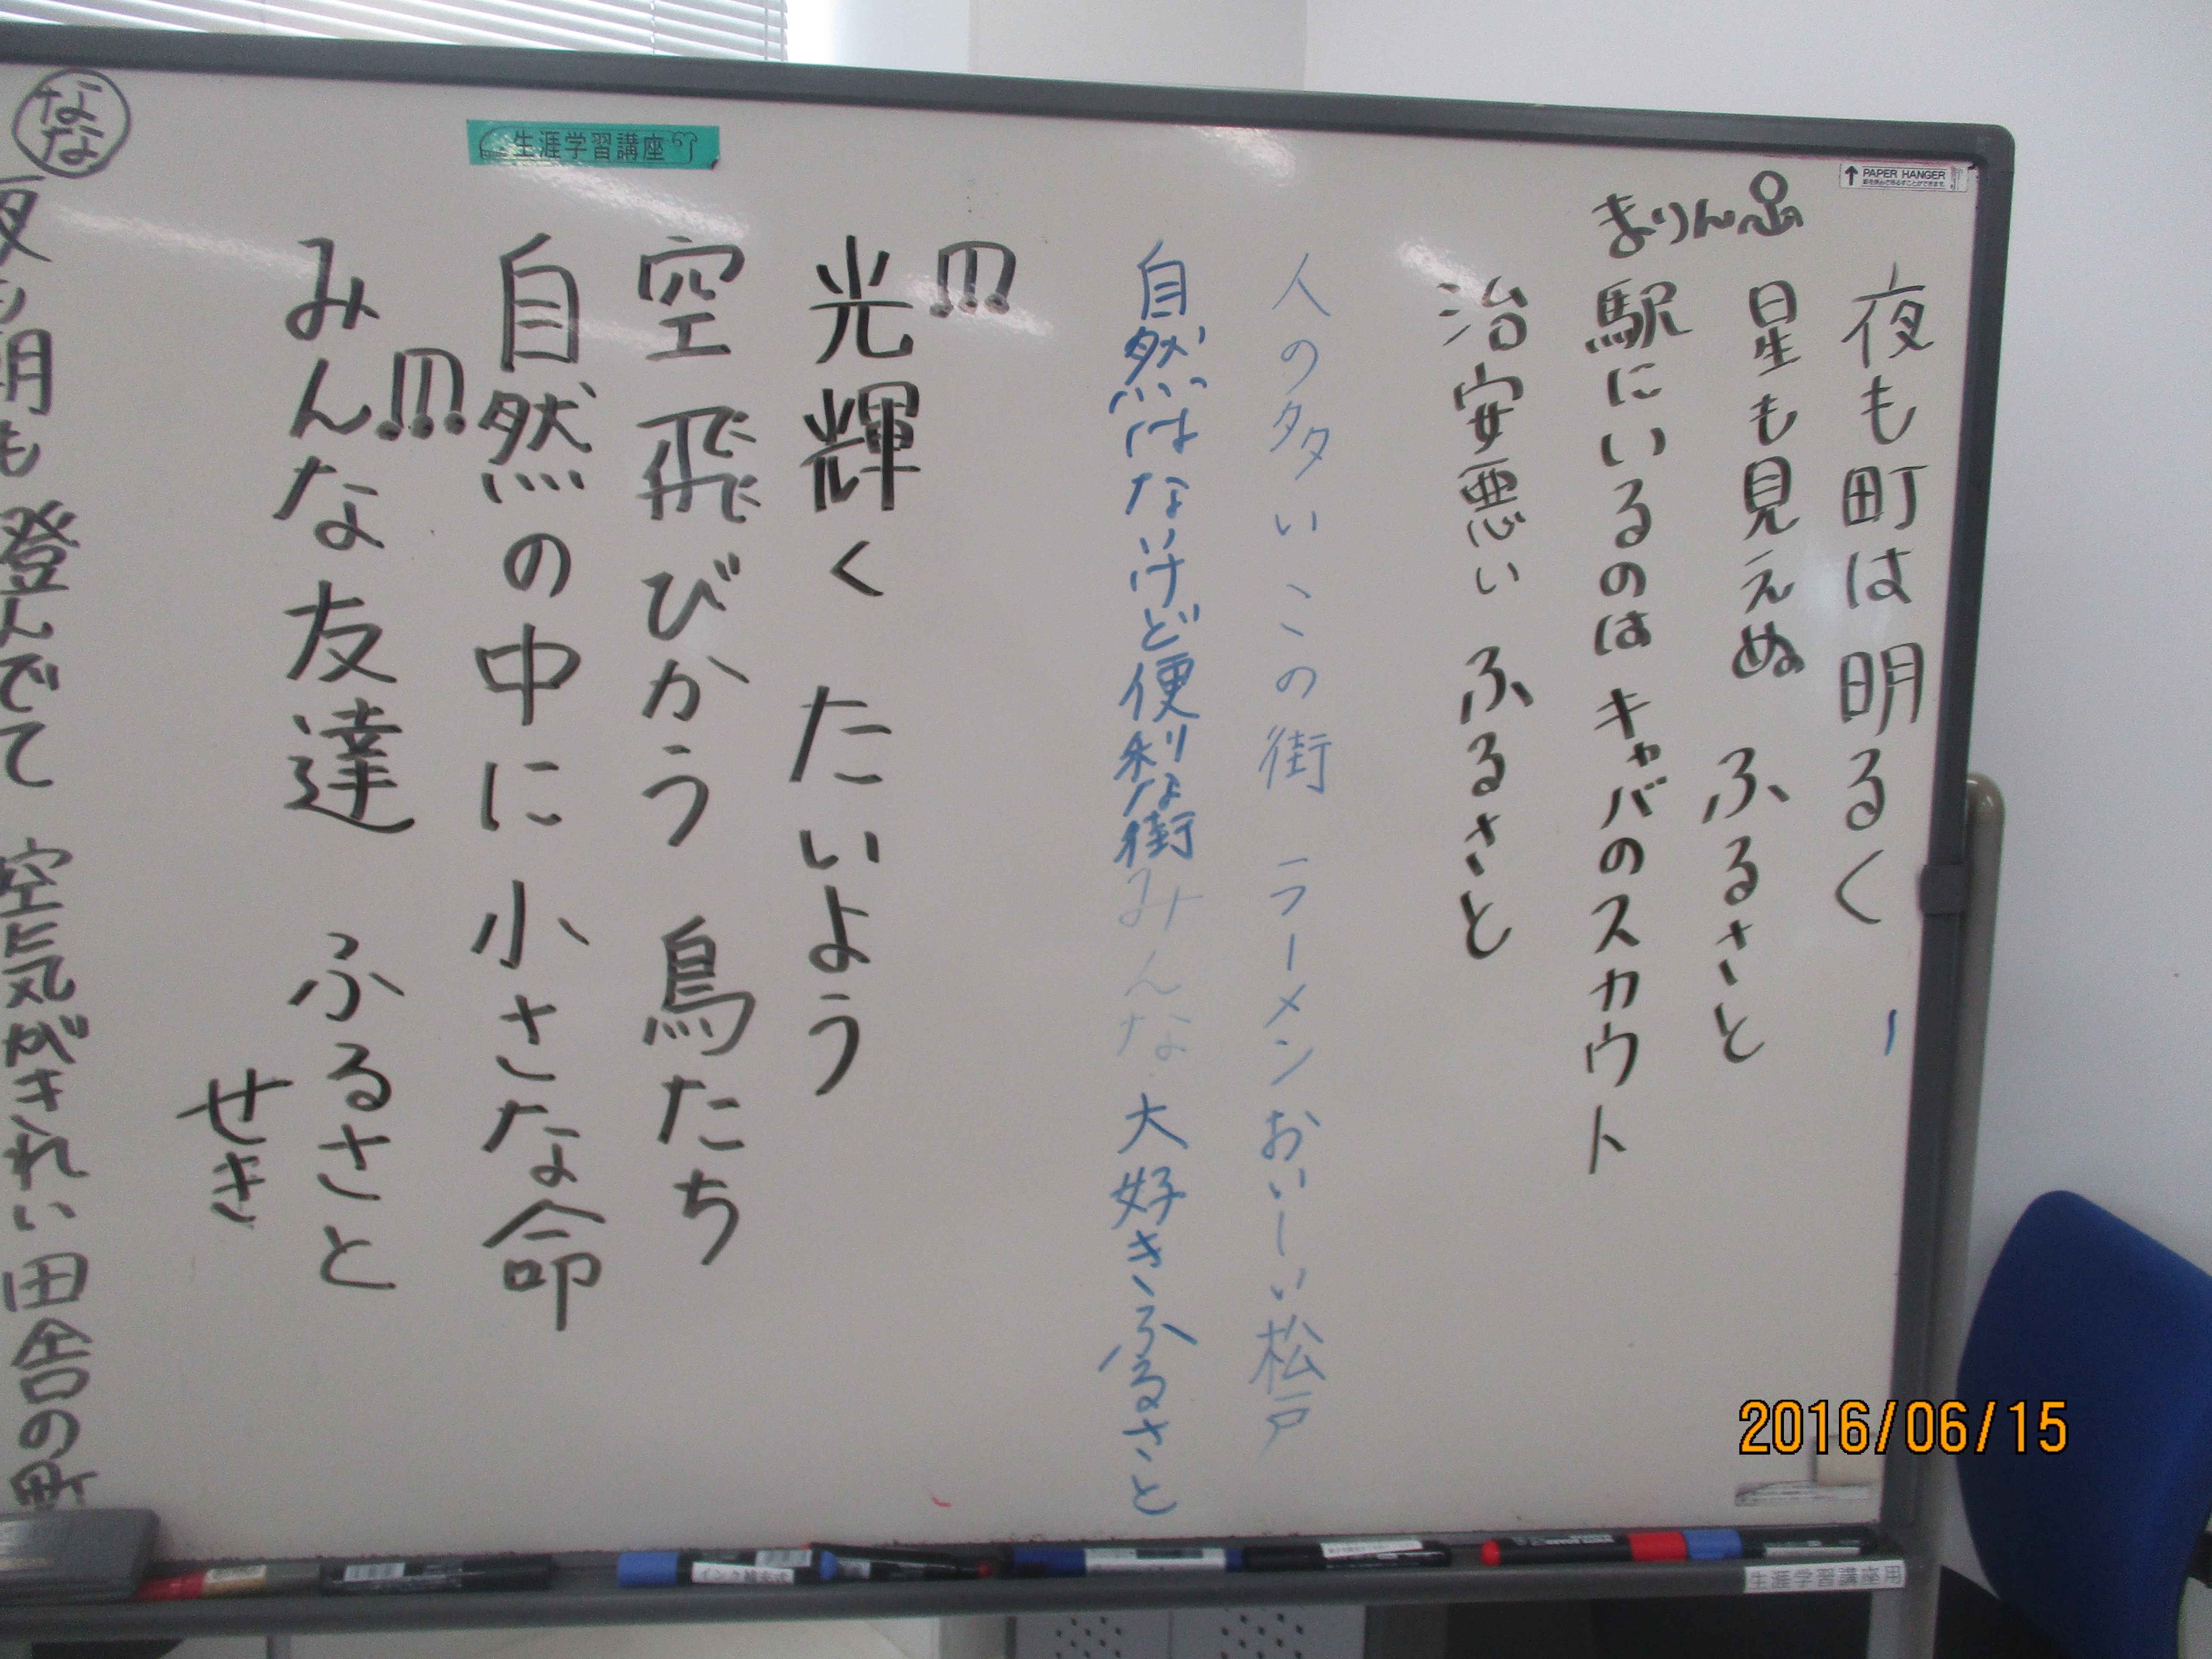 夜も町は明るく
星も見えぬ ふるさと
駅にいるのは キャバのスカウト
治安悪い ふるさと
まりん
人の多い この街 ラーメンおいしい松戸
自然はないけど便利な街 みんな 大好きふるさと
光輝く たいよう
空飛びかう 鳥たち
自然の中に 小さな命
みんな友達 ふるさと
せき
なな
夜も朝も 登んでて 空気がきれい 田舎の町
生涯学習講座
PAPER HANGER
生涯学習講座用
2016/06/15